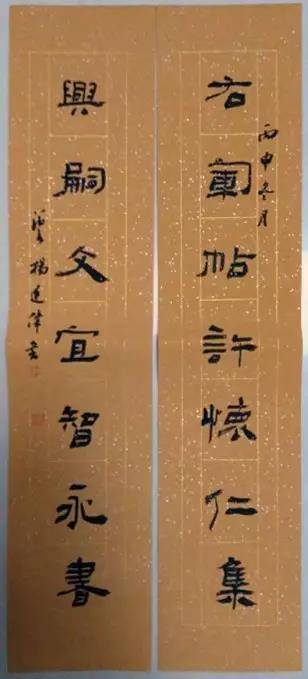 丙申冬月
右軍帖許懷仁集
興嗣文宜智永書
楊